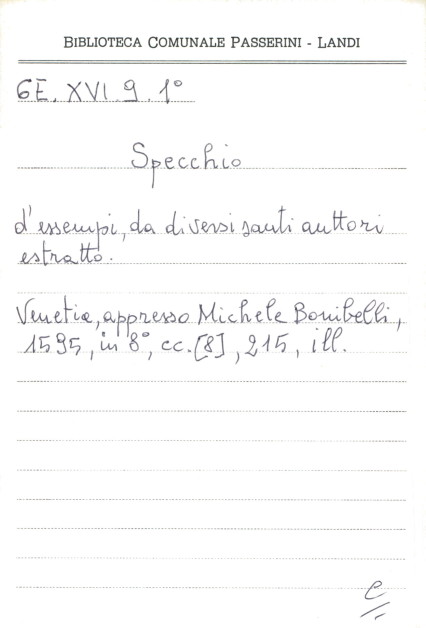 BIBLIOTECA COMUNALE PASSERINI - LANDI
6E. XVI. 9. 1°
Specchio
d'essempi, da diversi santi auttori
estratto.
Venetia, appresso Michele Bonibelli,
1595, in 8°, cc. [8], 215, ill.
e